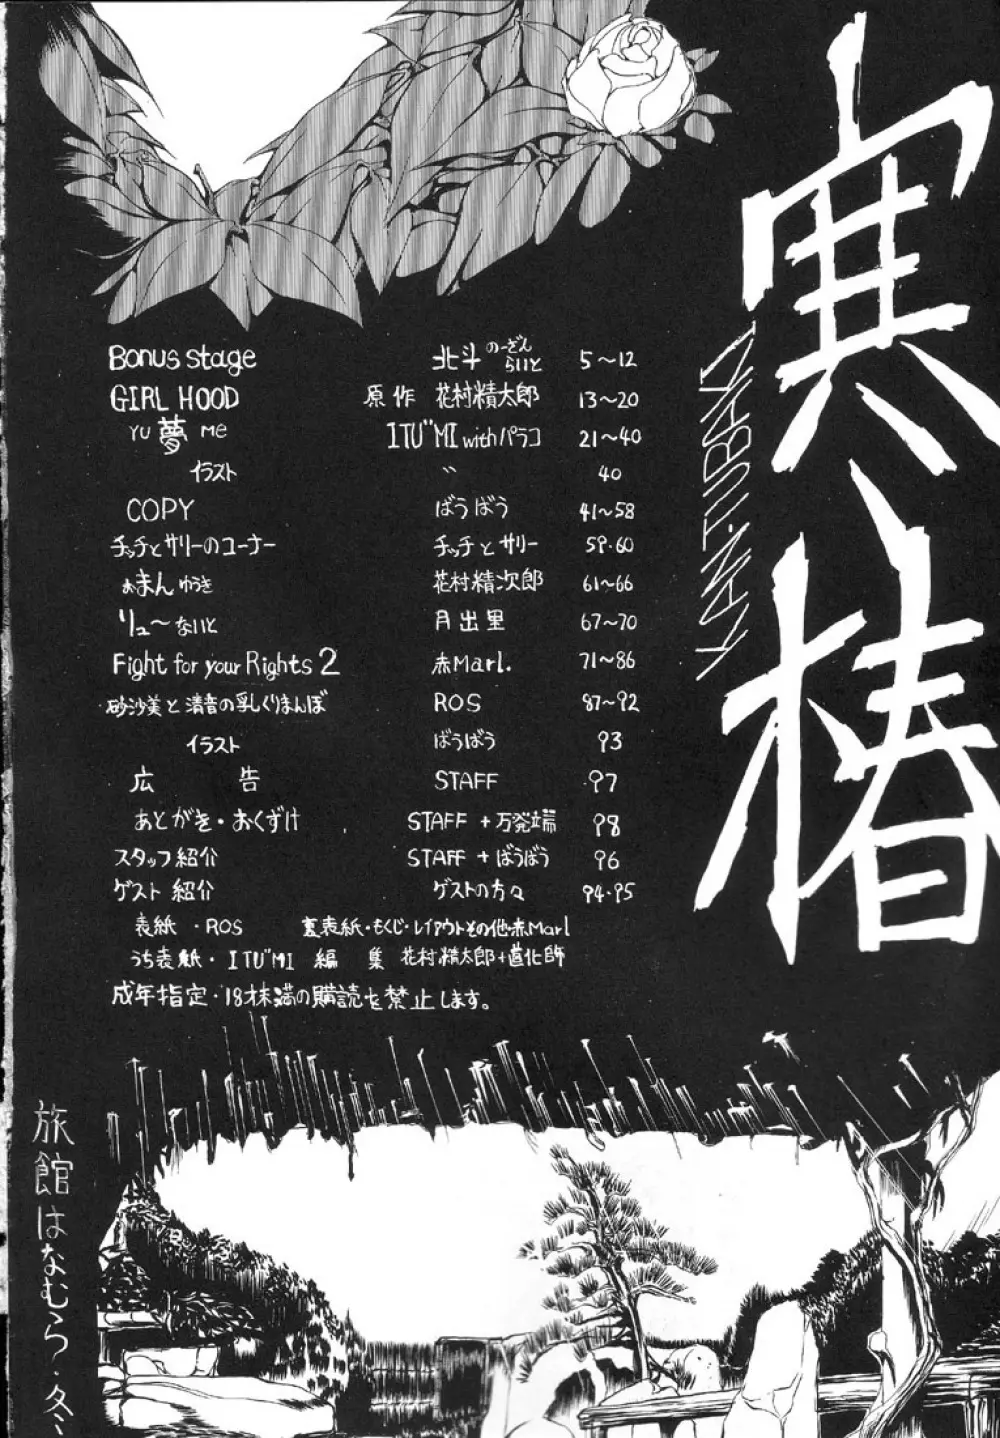 寒椿
KAN・TUBAKI
Bonus stage 北斗 のーざんらいと 5〜12
GIRL HOOD 原作 花村精太郎 13〜20
YU夢Me ITU"MI withパラコ 21〜40
イラスト 〃 40
COPY ばうばう 41〜58
チッチとサリーのコーナー チッチとサリー 59・60
おまんゆうき 花村精次郎 61〜66
リュ〜ないと 月出里 67〜70
Fight for your Rights 2 赤Marl. 71〜86
砂沙美と清音の乳くりまんぼ ROS 87〜92
イラスト ばうばう 93
広告 STAFF 97
あとがき・おくずけ STAFF+万発端 98
スタッフ紹介 STAFF+ばうばう 96
ゲスト紹介 ゲストの方々 94・95
表紙・ROS 裏表紙・もくじ・レイアウトその他・赤Marl
うち表紙・ITU"MI 編集 花村精太郎+道化師
成年指定・18才未満の購読を禁止します。
旅館はなむら・冬